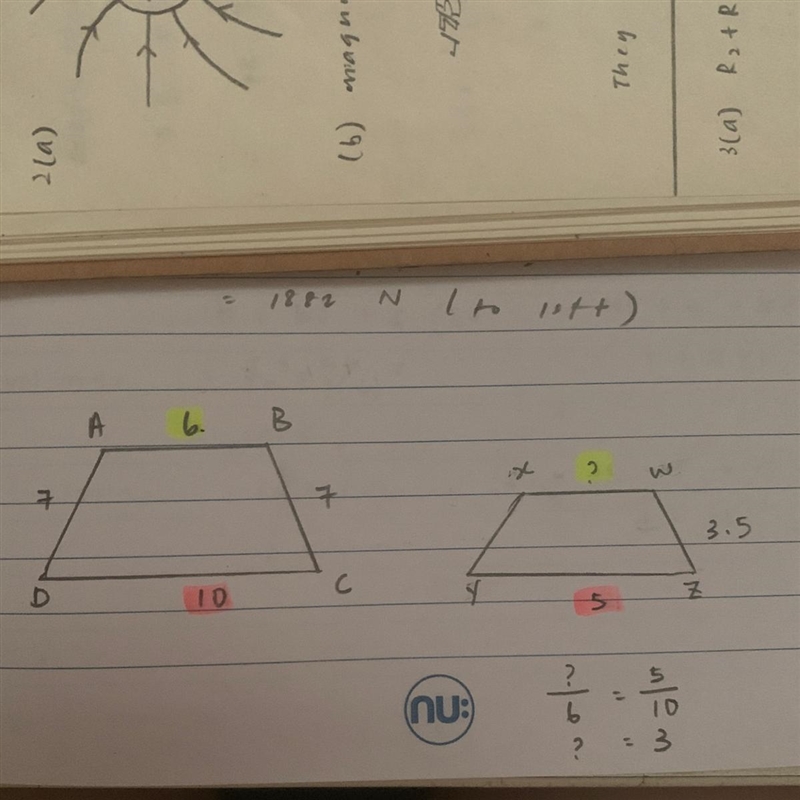 2(a)
(b) magn
They
3(a) R₂ + R
= 1882 N (to
A 6. B
7 7
D 10 C
X ? W
3.5
Y 5 Z
?/6 = 5/10
? = 3
nu: